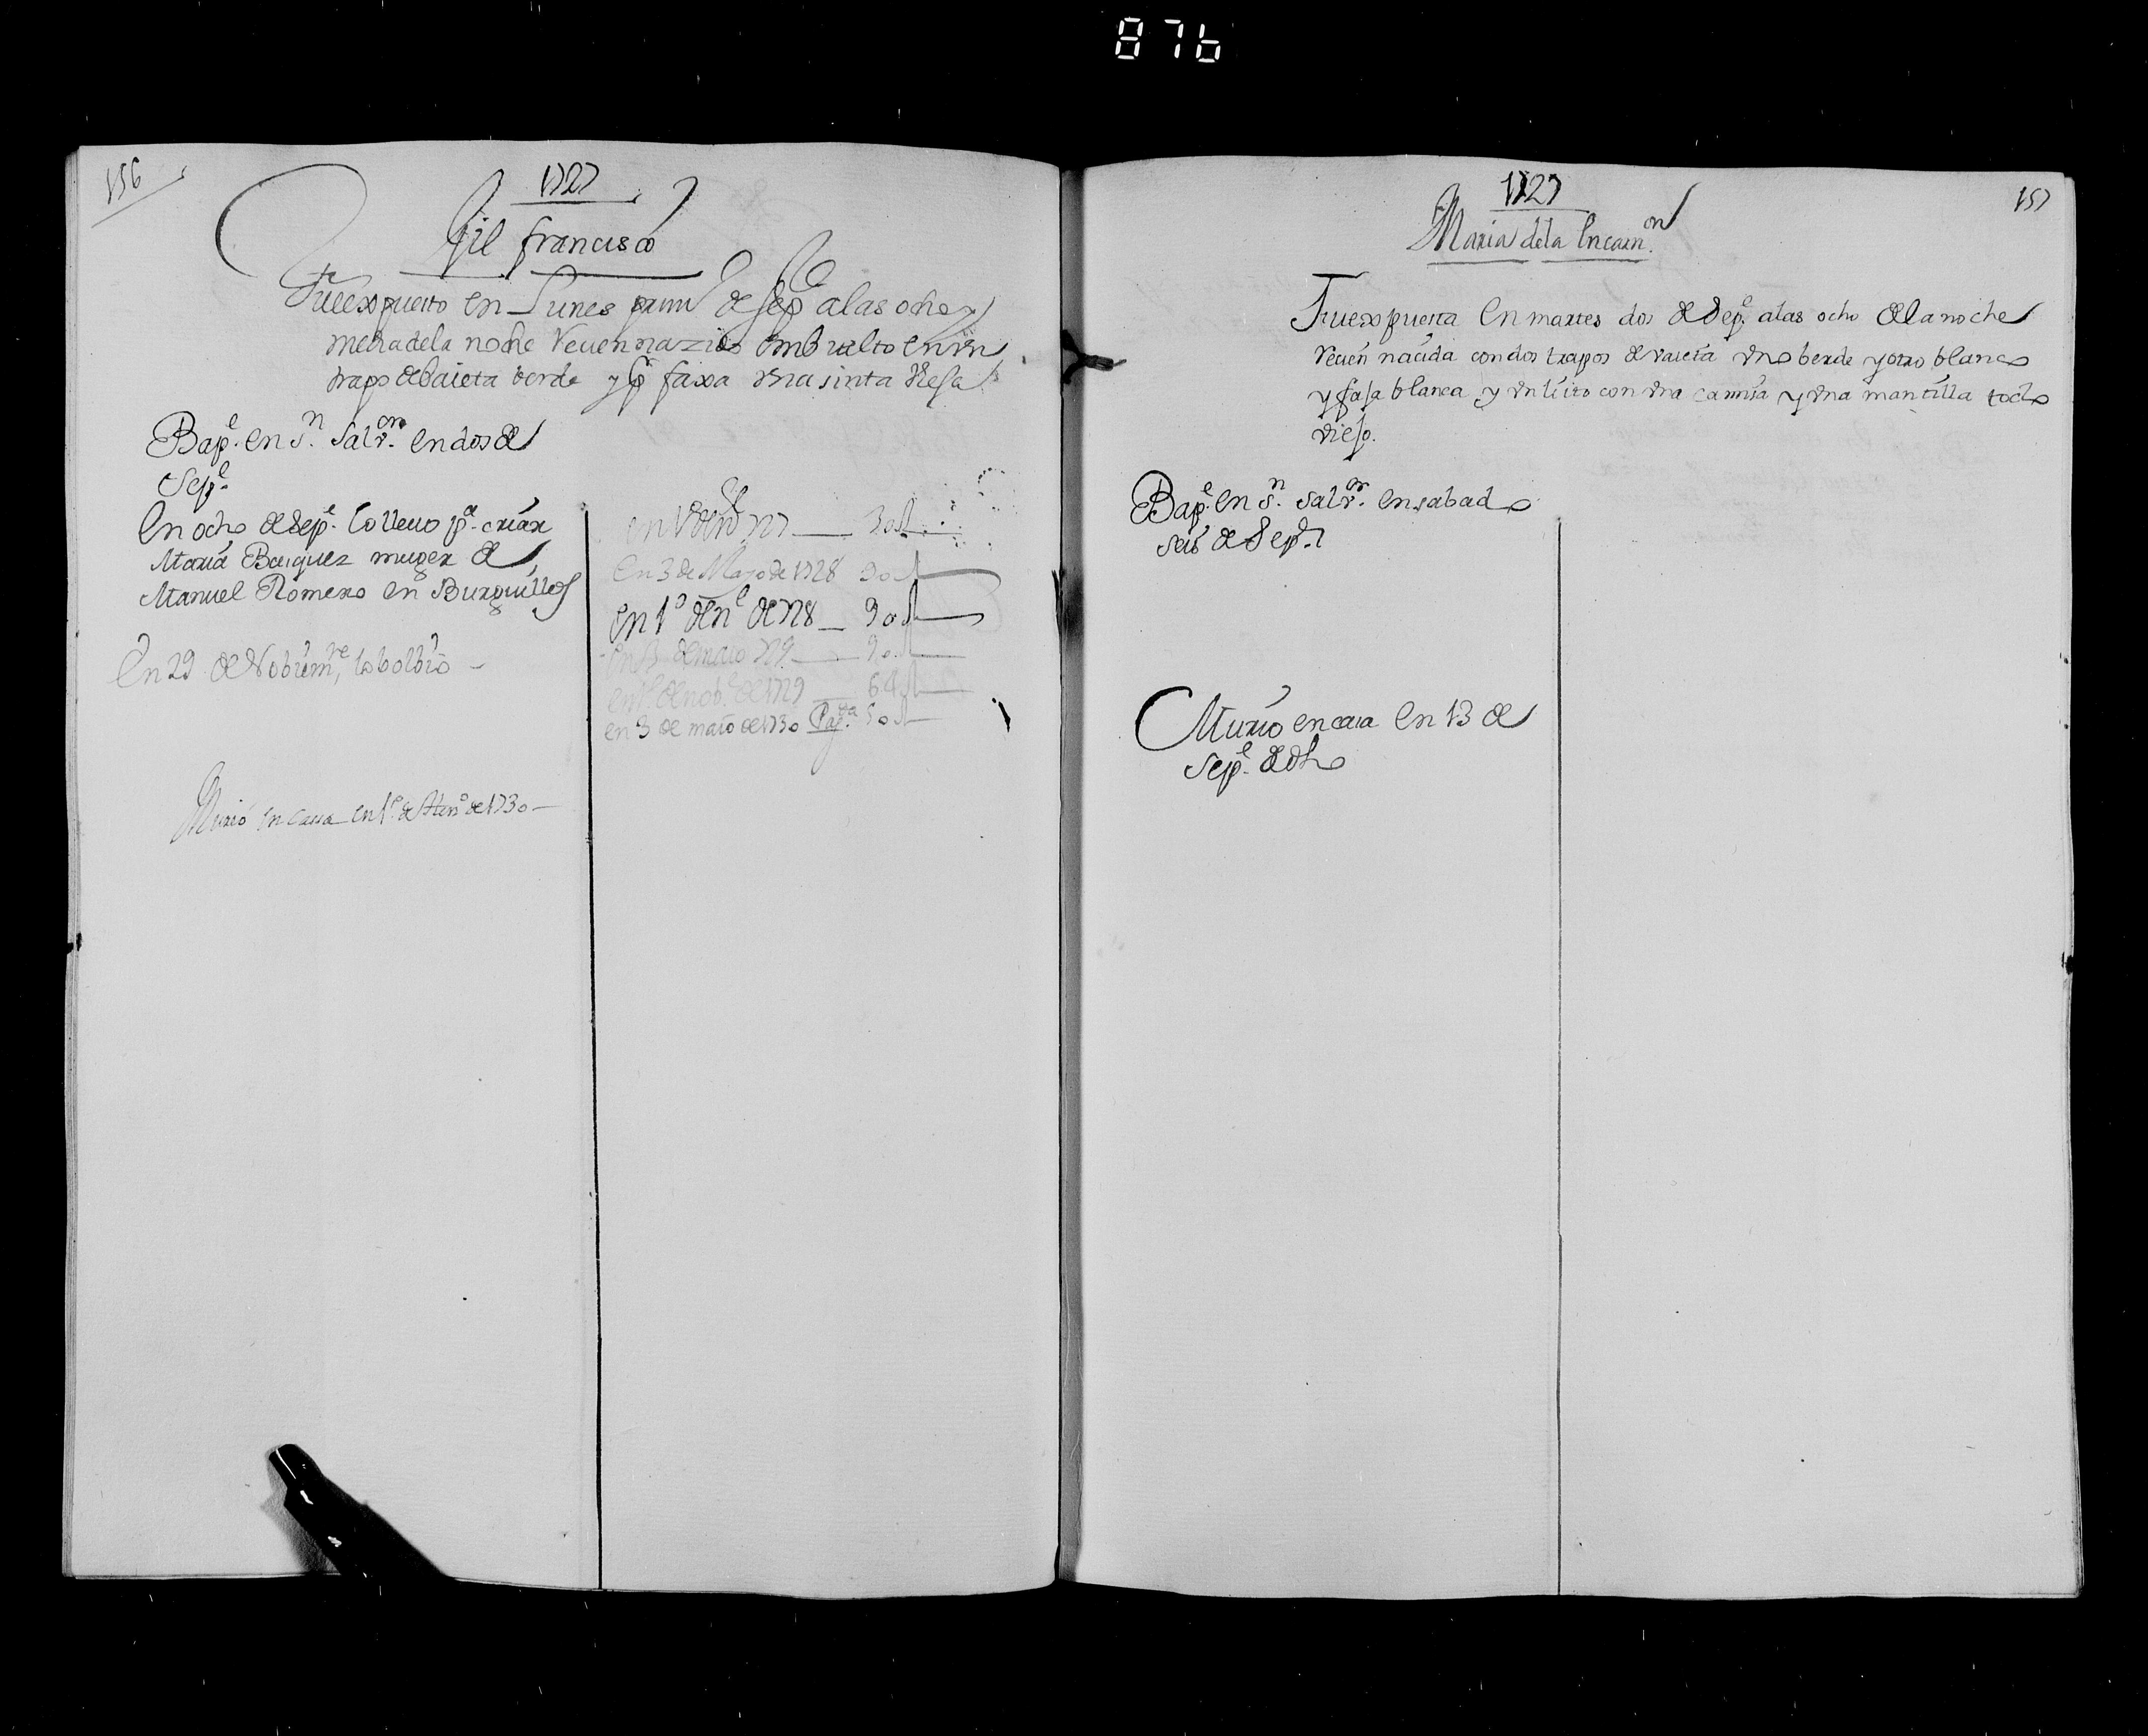 876
156
1727
Gil francisco
Fue expuesto en Lunes prim.o de Sep.e a las ocho y
media de la noche recien nazido embuelto en un
trapo de baieta berde y p.r faxa una sinta vieja
Bap.e en S.n Salv.or en dos de
Sep.e
En ocho de Sep.e lo llevo p.a criar
Maria Basquez muger de
Manuel Romero en Burguillos
En 29 de Nobiem.re lo bolbio
Murio en casa en 1.o de de 1730
en 727 30 r
en 3 de Mayo de 1728 90 r
en 1.o de n.e de 728 90 r
en 3 de maio 729 90 r
en 1.o de nob.e de 1729 64 r
en 3 de maio de 1730 Pag.da 50 r
1727
157
Maria de la Encarn.on
Fue expuesta en martes dos de Sep.e a las ocho de la noche
recien nacida con dos trapos de vaieta uno berde y otro blanco
y faja blanca y enbuelto con una camisa y una mantilla todo
viejo.
Bap.e en S.n Salv.or en sabado
seis de Sep.e
Murio en casa en 13 de
Sep.e de dho